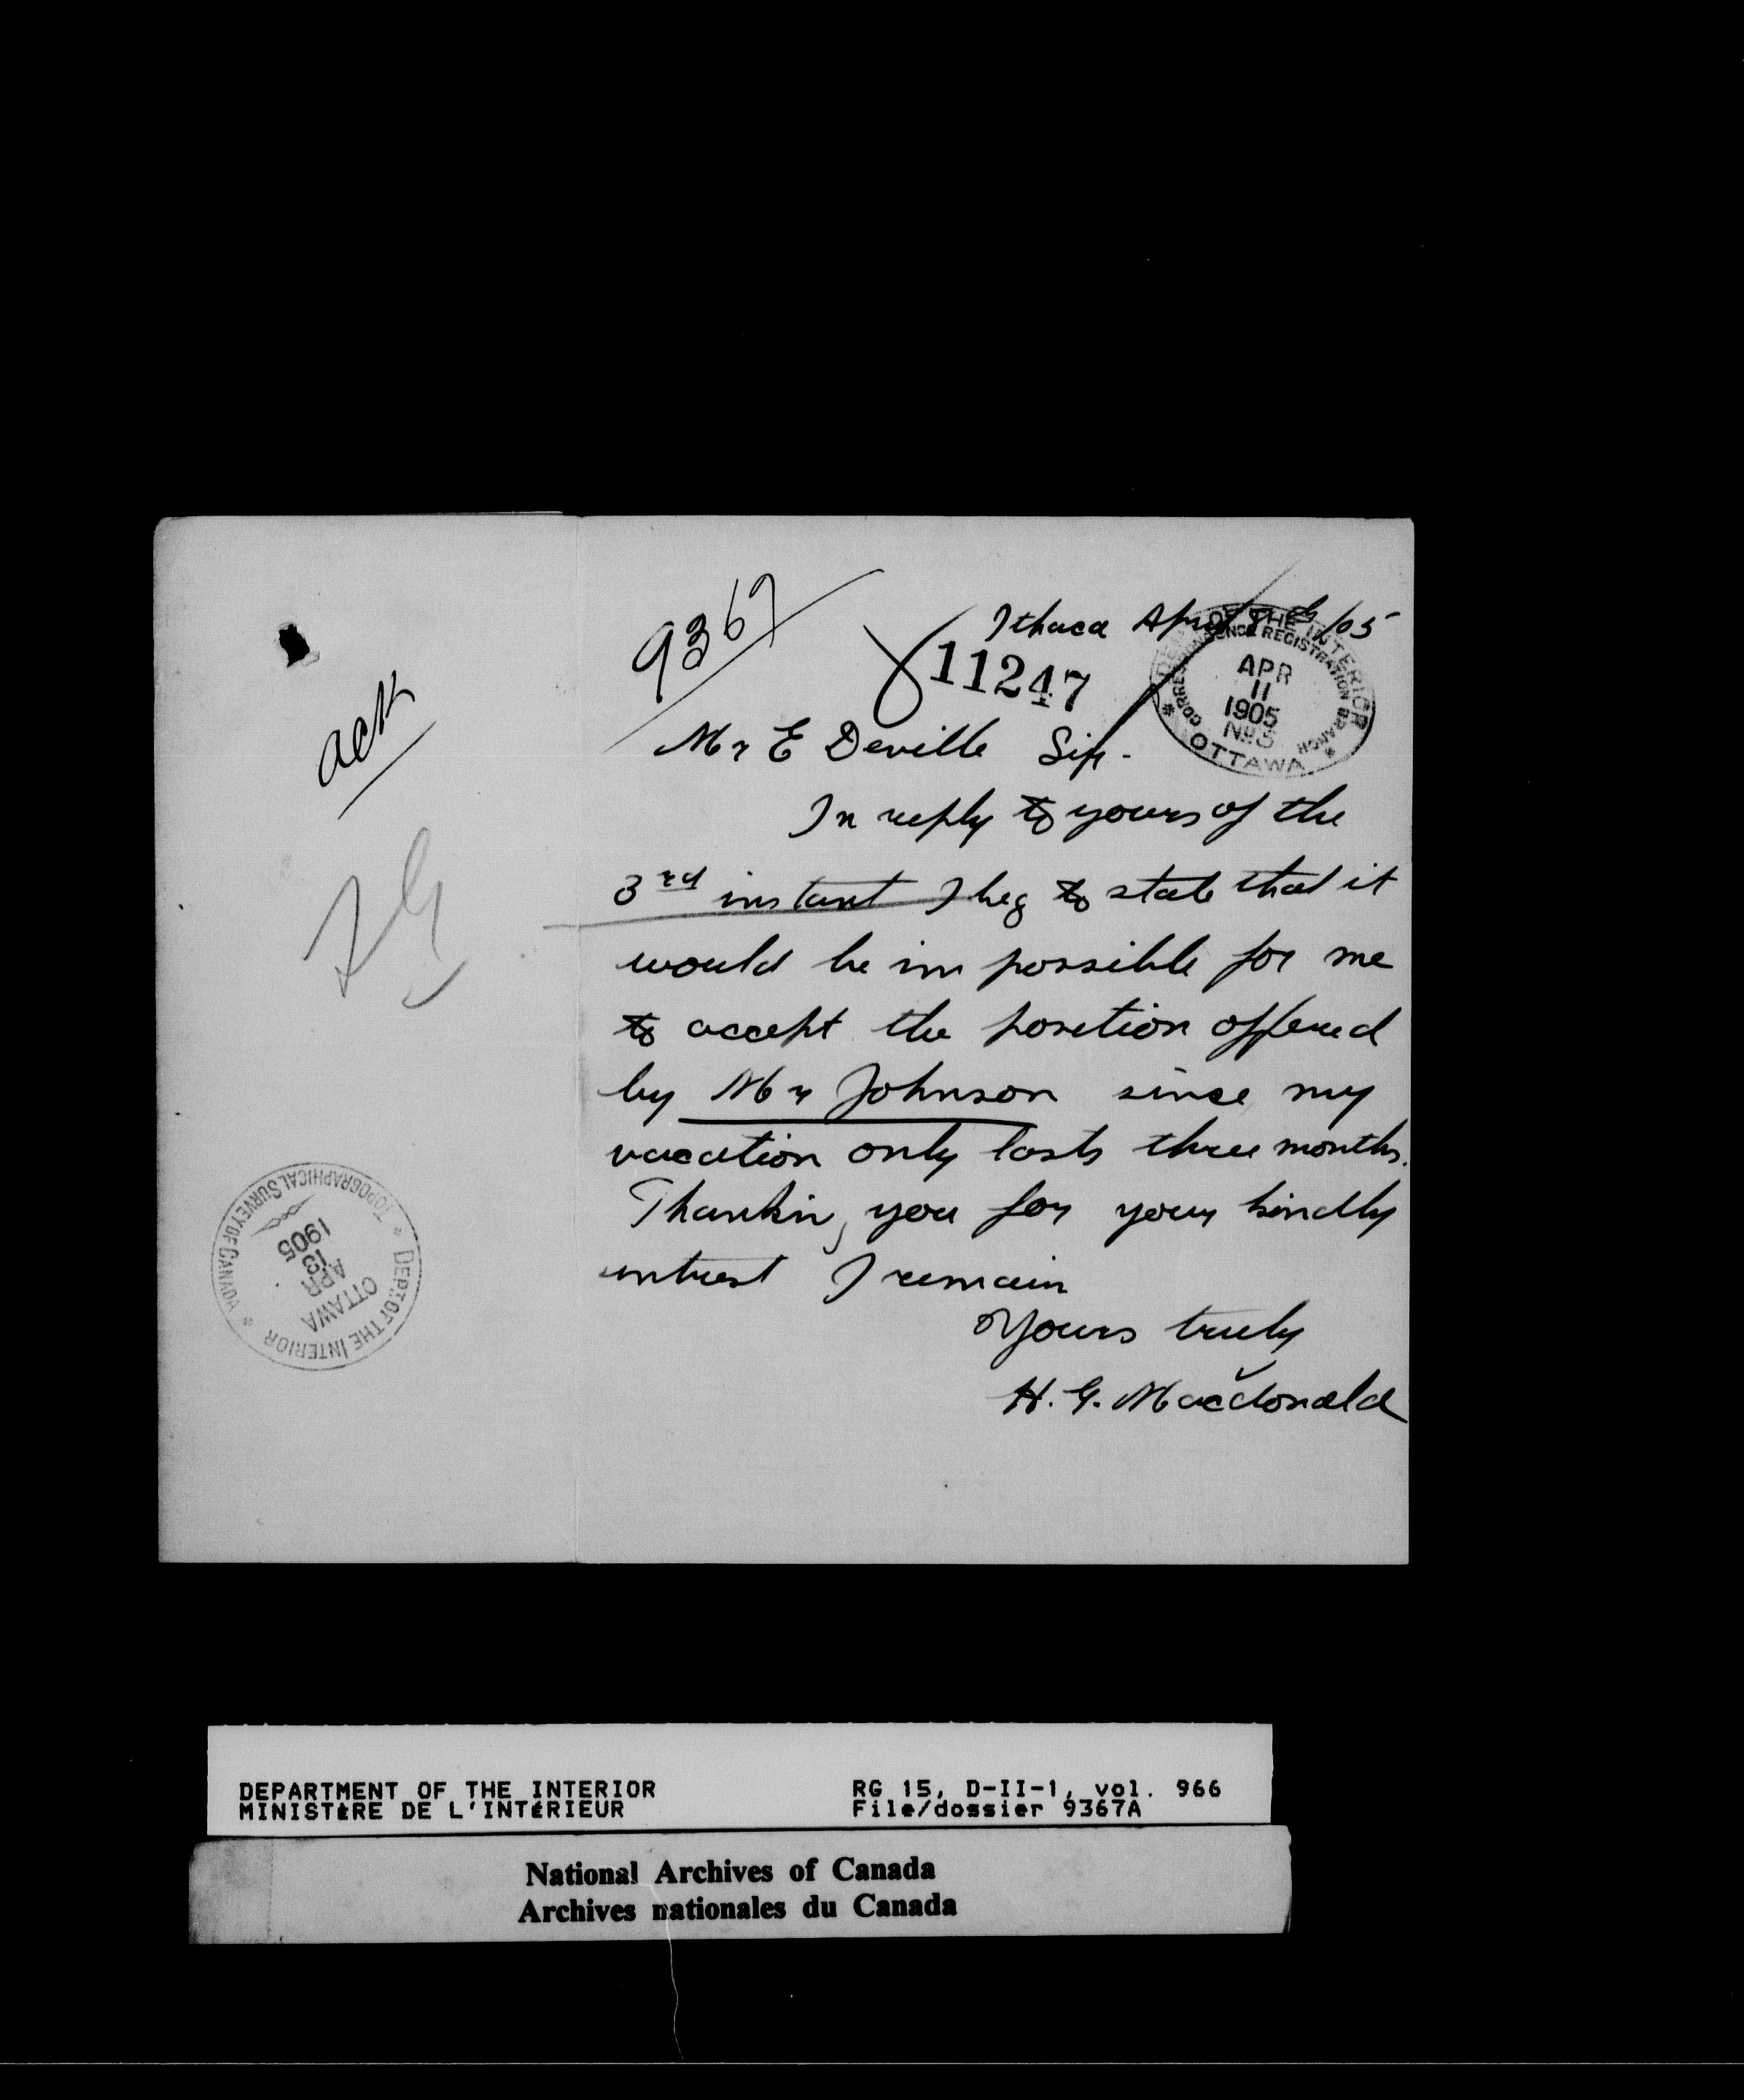 ack
9367
Ithaca April 8th/05
11247
DEPT. OF THE INTERIOR
CORRESPONDENCE REGISTRATION BRANCH
APR
11
1905
No 3
OTTAWA
Mr E Deville Sir -
In reply to yours of the
3rd instant I beg to state that it
would be im possible for me
to accept the position offered
by Mr Johnson since my
vacation only lasts three months.
Thankin, you for your kindly
intrest I remain
Yours truly
H. G. Macdonald
DEPT. OF THE INTERIOR
OTTAWA
APR
13
1905
TOPOGRAPHICAL SURVEY OF CANADA
DEPARTMENT OF THE INTERIOR RG 15, D-II-1, vol. 966
MINISTÈRE DE L'INTÉRIEUR File/dossier 9367A
National Archives of Canada
Archives nationales du Canada